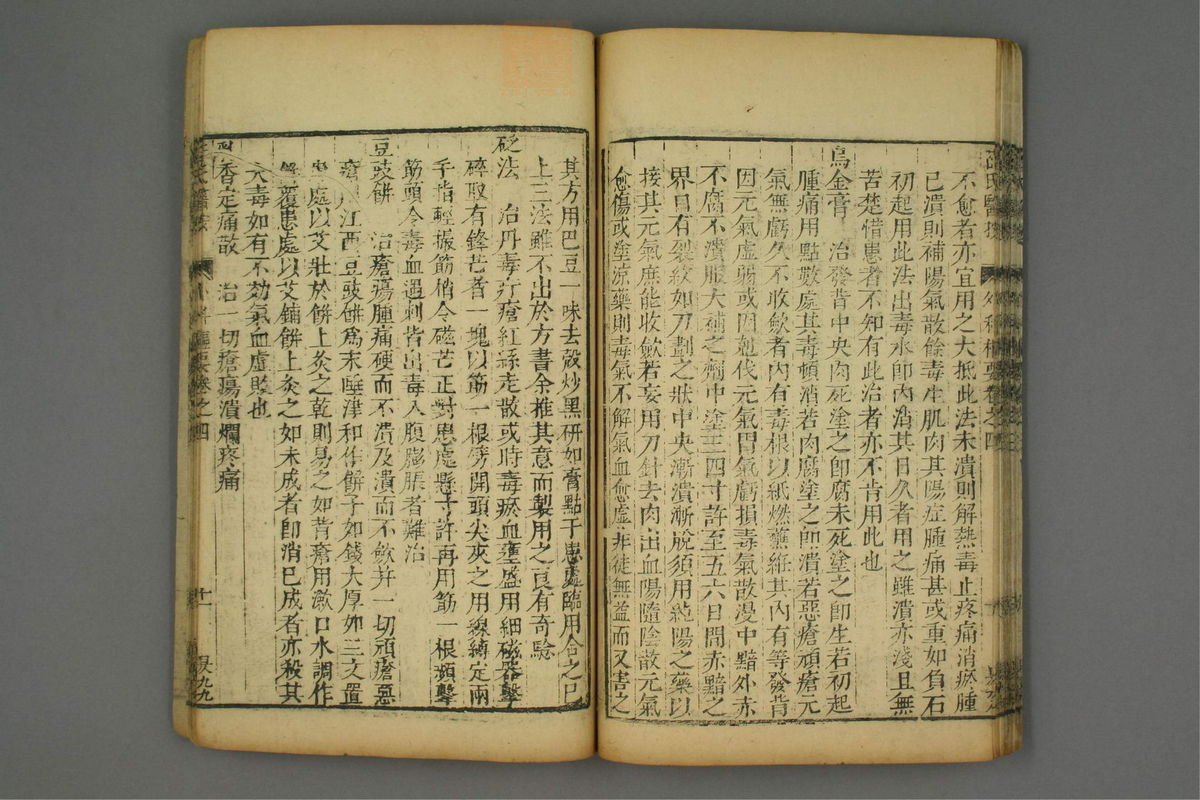 不愈者亦宜用之大抵此法未潰則解熱毒止疼痛消瘀腫
已潰則補陽氣散餘毒生肌肉其陽症腫痛甚或重如負石
初起用此法出毒水即內消其日久者用之雖潰亦淺且無
苦楚惜患者不知有此治者亦不肯用此也
烏金膏 治發背中央肉死塗之即腐未死塗之即生若初起
腫痛用點數處其毒頓消若肉腐塗之即潰若惡瘡頑瘡元
氣無虧久不收斂者內有毒根以紙燃蘸絍其內有等發背
因元氣虛弱或因尅伐元氣胃氣虧損毒氣散漫中黯外赤
不腐不潰服大補之劑中塗三四寸許至五六日間赤黯之
界自有裂紋如刀劃之狀中央漸潰漸脫須用純陽之藥以
接其元氣庶能收斂若妄用刀針去肉出血陽隨陰散元氣
愈傷或塗涼藥則毒氣不解氣血愈虛非徒無益而又害之
其方用巴豆一味去殼炒黑研如膏點于患處臨用合之已
上三法雖不出於方書余推其意而製用之良有奇驗
砭法 治丹毒疔瘡紅絲走散或時毒瘀血壅盛用細磁器擊
碎取有鋒芒者一塊以筋一根劈開頭尖夾之用線縛定兩
手指輕撮筋稍令磁芒正對患處懸寸許再用筋一根頻擊
筋頭令毒血遇刺皆出毒入腹膨脹者難治
豆豉餅 治瘡瘍腫痛硬而不潰及潰而不斂并一切頑瘡惡
瘡 江西豆豉餅為末唾津和作餅子如錢大厚如三文置
患處以艾壯於餅上灸之乾則易之如背瘡用漱口水調作
餅覆患處以艾鋪餅上灸之如未成者即消已成者亦殺其
大毒如有不効氣血虛敗也
四香定痛散 治一切瘡瘍潰爛疼痛
醫
外科
卷之四
十一